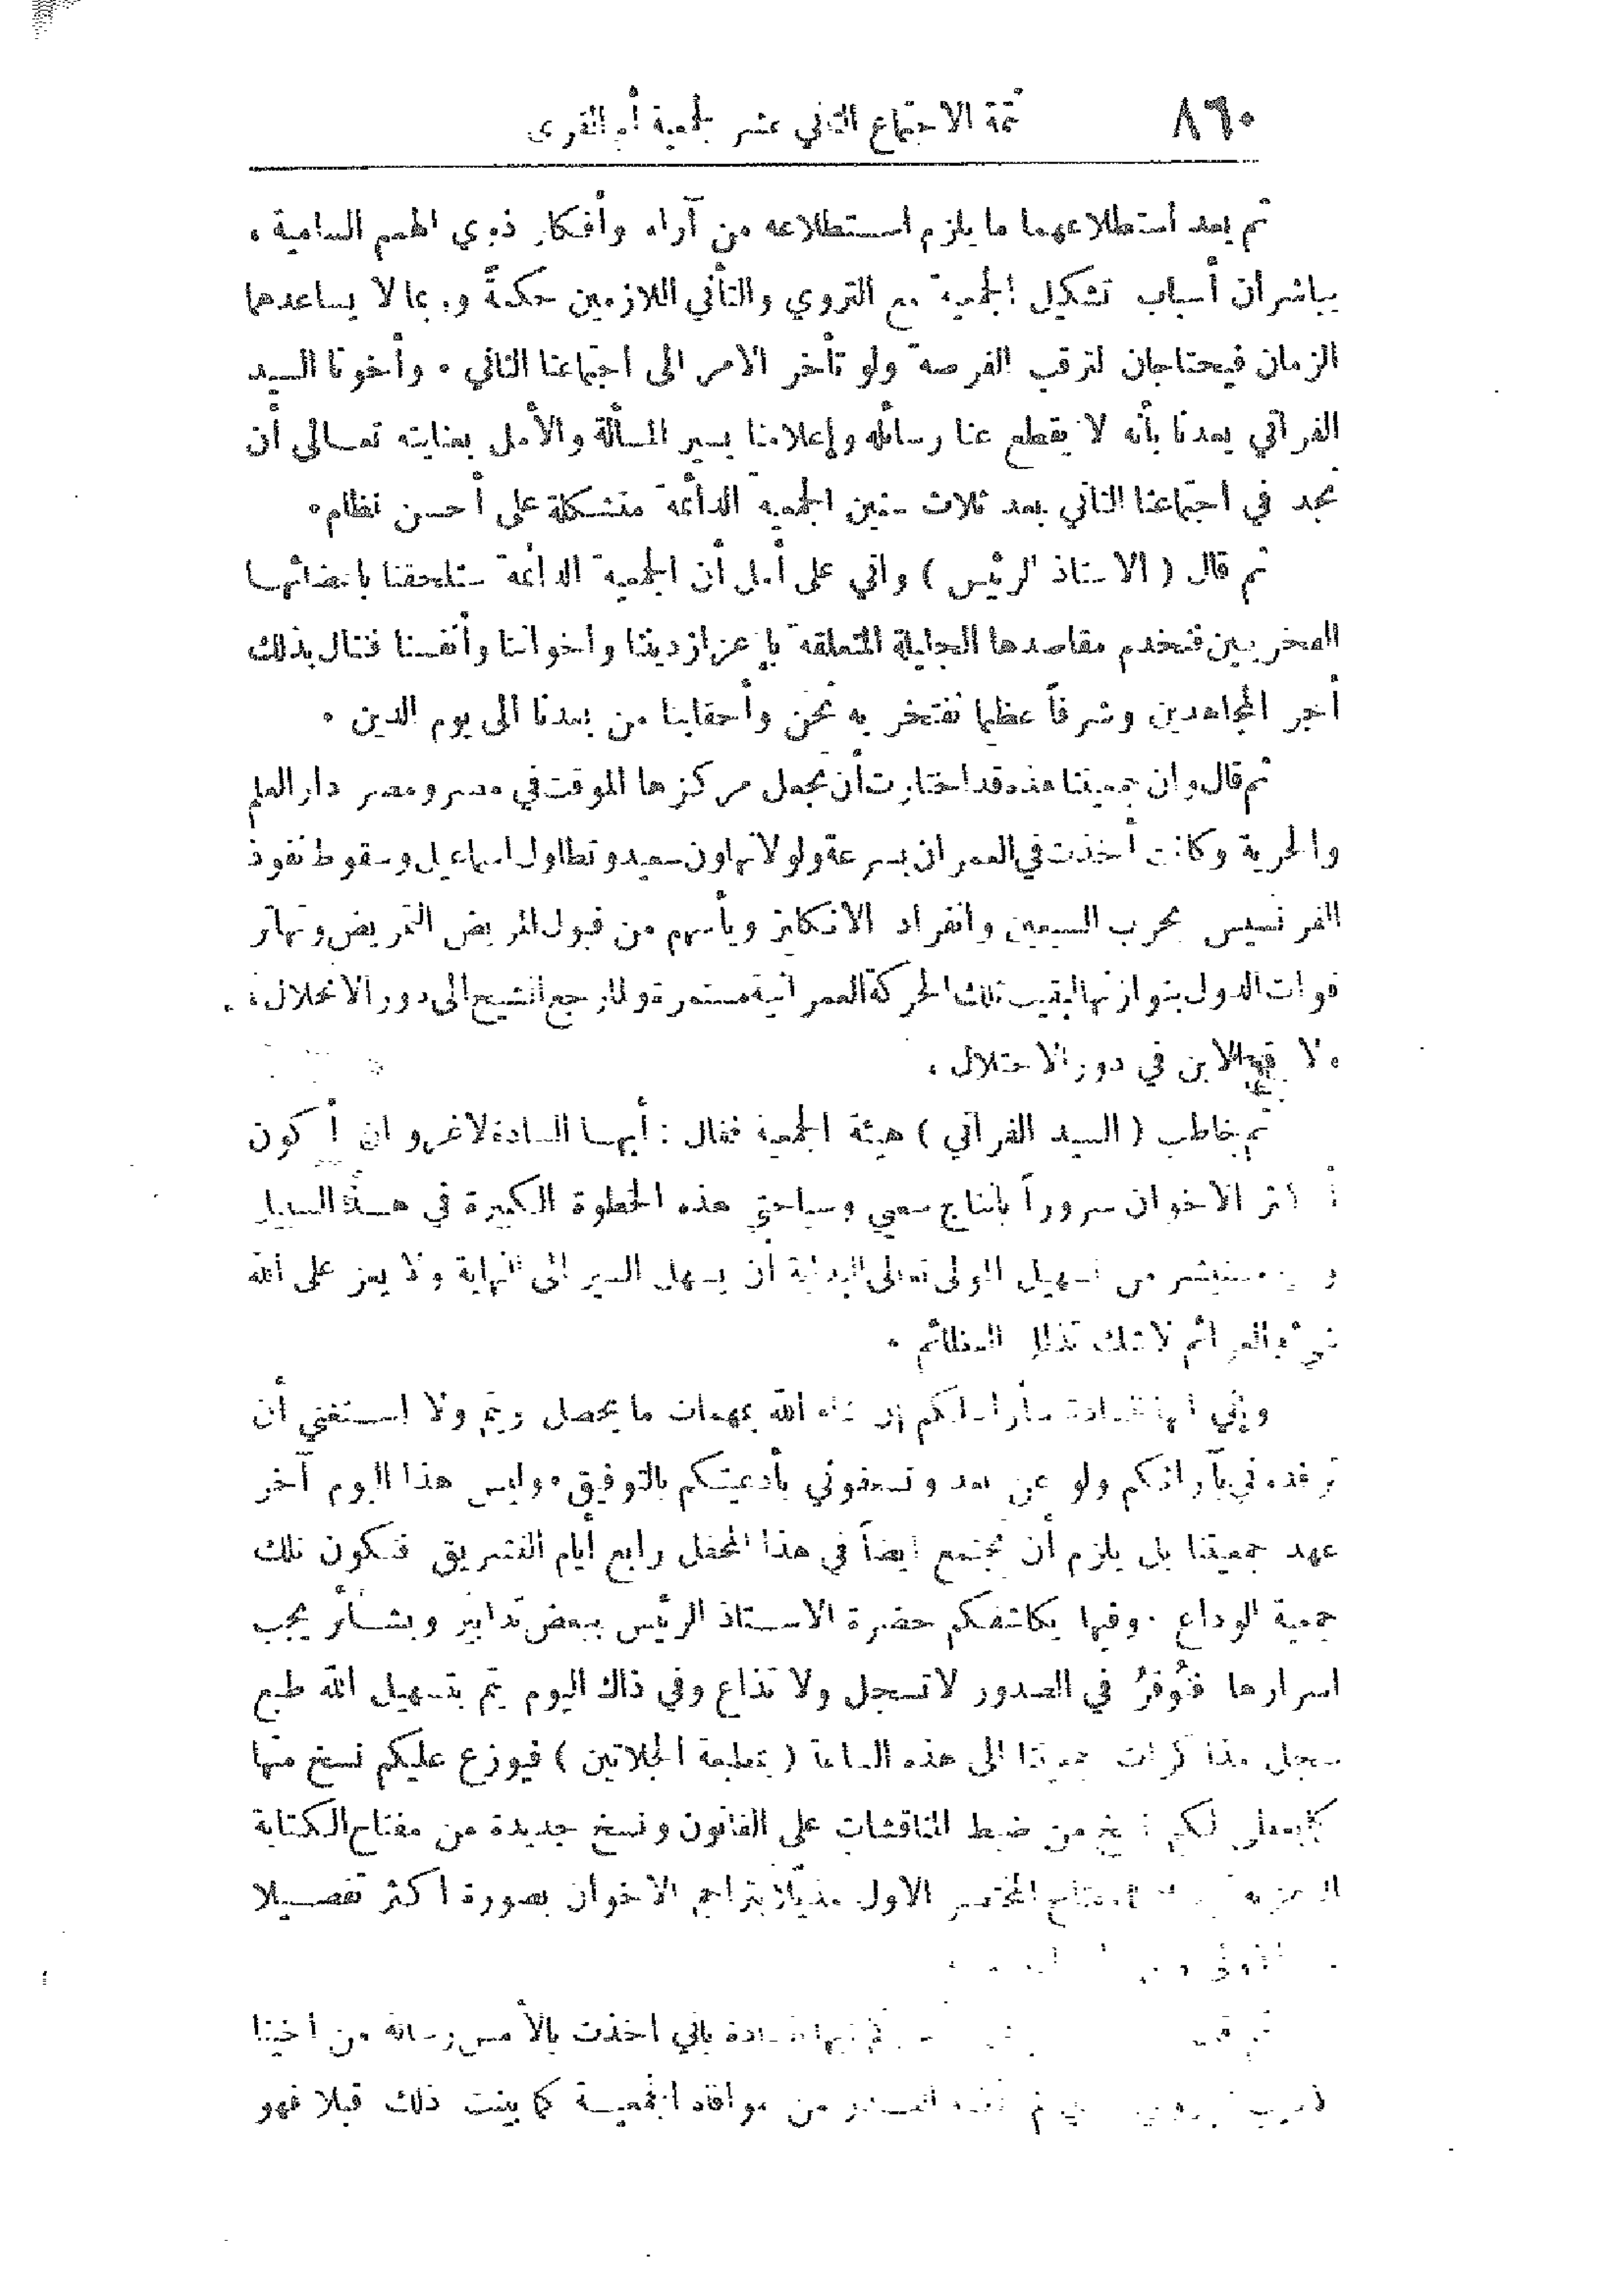 ٨٦٠ تتمة الاجتماع الثاني عشر لجمعية أم القرى
ثم بعد استطلاعهما ما يلزم استطلاعه من آراء وأفكار ذوي الهمم السامية .
يباشران أسباب تشكيل الجمعية مع التروي والتأني اللازمين حكمةً وربما لا يساعدهما
الزمان فيحتاجان لترقب الفرصة ولو تأخر الامر الى اجتماعنا الثاني . وأخونا السيد
الفراتي يعدنا بأنه لا يقطع عنا رسائله وإعلامنا بسير المسألة والأمل بعنايته تعالى أن
نجد في اجتماعنا الثاني بعد ثلاث سنين الجمعية الدائمة متشكلة على أحسن نظام .
ثم قال ( الاستاذ الرئيس ) واني على أمل أن الجمعية الدائمة ستلحقنا باعضائها
الفخريين فنخدم مقاصدها الجليلة المتعلقة بإعزاز ديننا واخواننا وأنفسنا فننال بذلك
أجر المجاهدين وشرفاً عظيما نفتخر به نحن وأحفادنا من بعدنا الى يوم الدين .
ثم قال وان جمعيتنا هذه قد اختارت أن تجعل مركزها الموقت في مصر ومصر دار العلم
والحرية وكانت أخذت في العمران بسرعة ولولا تهاون سعيد وتطاول اسماعيل وسقوط نفوذ
الفرنسيس بحرب السبعين وانفراد الانكليز ويأسهم من قبول المريض التمريض وتهاتر
قوات الدول بتوازنها لبقيت تلك الحركة العمرانية مستمرة ولما رجع الشيخ الى دور الانحلال ،
ولا الابن في دور الاحتلال .
ثم خاطب ( السيد الفراتي ) هيئة الجمعية فقال : أيها السادة لا غرو ان أكون
أكثر الاخوان سروراً بانتاج سعيي وسياحتي هذه الخطوة الكبيرة في هذا السبيل
من تسهيل المولى تعالى البداية أن يسهل السير الى النهاية ولا يعز على الله
شيء والعزائم لا شك تذلل العظائم .
وإني أيها السادة سأراسلكم إن شاء الله بمهمات ما يحصل ويتم ولا استغني أن
ترفدوني بآرائكم ولو عن بعد وتسعفوني بأدعيتكم بالتوفيق . وليس هذا اليوم آخر
عهد جمعيتنا بل يلزم أن نجتمع ايضاً في هذا المحفل رابع أيام التشريق فتكون تلك
جمعية الوداع . وفيها يكاشفكم حضرة الاستاذ الرئيس ببعض تدابير وبشائر يجب
اسرارها فتُوقرُ في الصدور لا تسجل ولا تذاع وفي ذاك اليوم يتم بتسهيل الله طبع
سجل مذاكرات جمعيتنا الى هذه الساعة ( بمطبعة الجلاتين ) فيوزع عليكم نسخ منها
كما يعطى لكم نسخ من ضبط المناقشات على القانون ونسخ جديدة من مفتاح الكتابة
المفتاح المختصر الاول مذيلا بتراجم الاخوان بصورة اكثر تفصيلا
بأني اخذت بالأمس رسالة من اخينا
من موافاة الجمعية كما بينت ذلك قبلا فهو